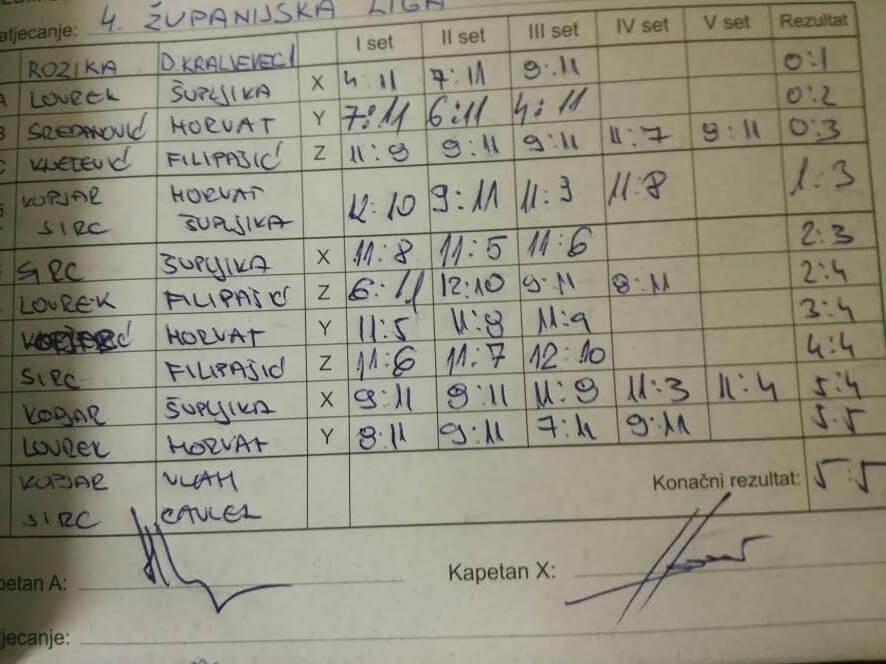 atjecanje: 4. ŽUPANIJSKA LIGA
I set II set III set IV set V set Rezultat
ROZIKA D.KRALJEVECI
LOVREK ŠUPLJIKA X 4:11 7:11 9:11 0:1
SREDANOVIĆ HORVAT Y 7:11 6:11 4:11 0:2
FILIPAŠIĆ Z 11:9 9:11 9:11 11:7 9:11 0:3
KOPJAR HORVAT
SIRC ŠUPLJIKA 12:10 9:11 11:9 11:8 1:3
SIRC ŠUPLJIKA X 11:8 11:5 11:6 2:3
LOVREK FILIPAŠIĆ Z 6:11 12:10 9:11 8:11 2:4
HORVAT Y 11:5 11:8 11:9 3:4
SIRC FILIPAŠIĆ Z 11:6 11:7 12:10 4:4
KOPJAR ŠUPLJIKA X 9:11 9:11 11:9 11:3 11:4 5:4
LOVREK HORVAT Y 8:11 9:11 7:11 9:11 5:5
KOPJAR VLAH
SIRC Konačni rezultat: 5:5
petan A: Kapetan X:
jecanje: